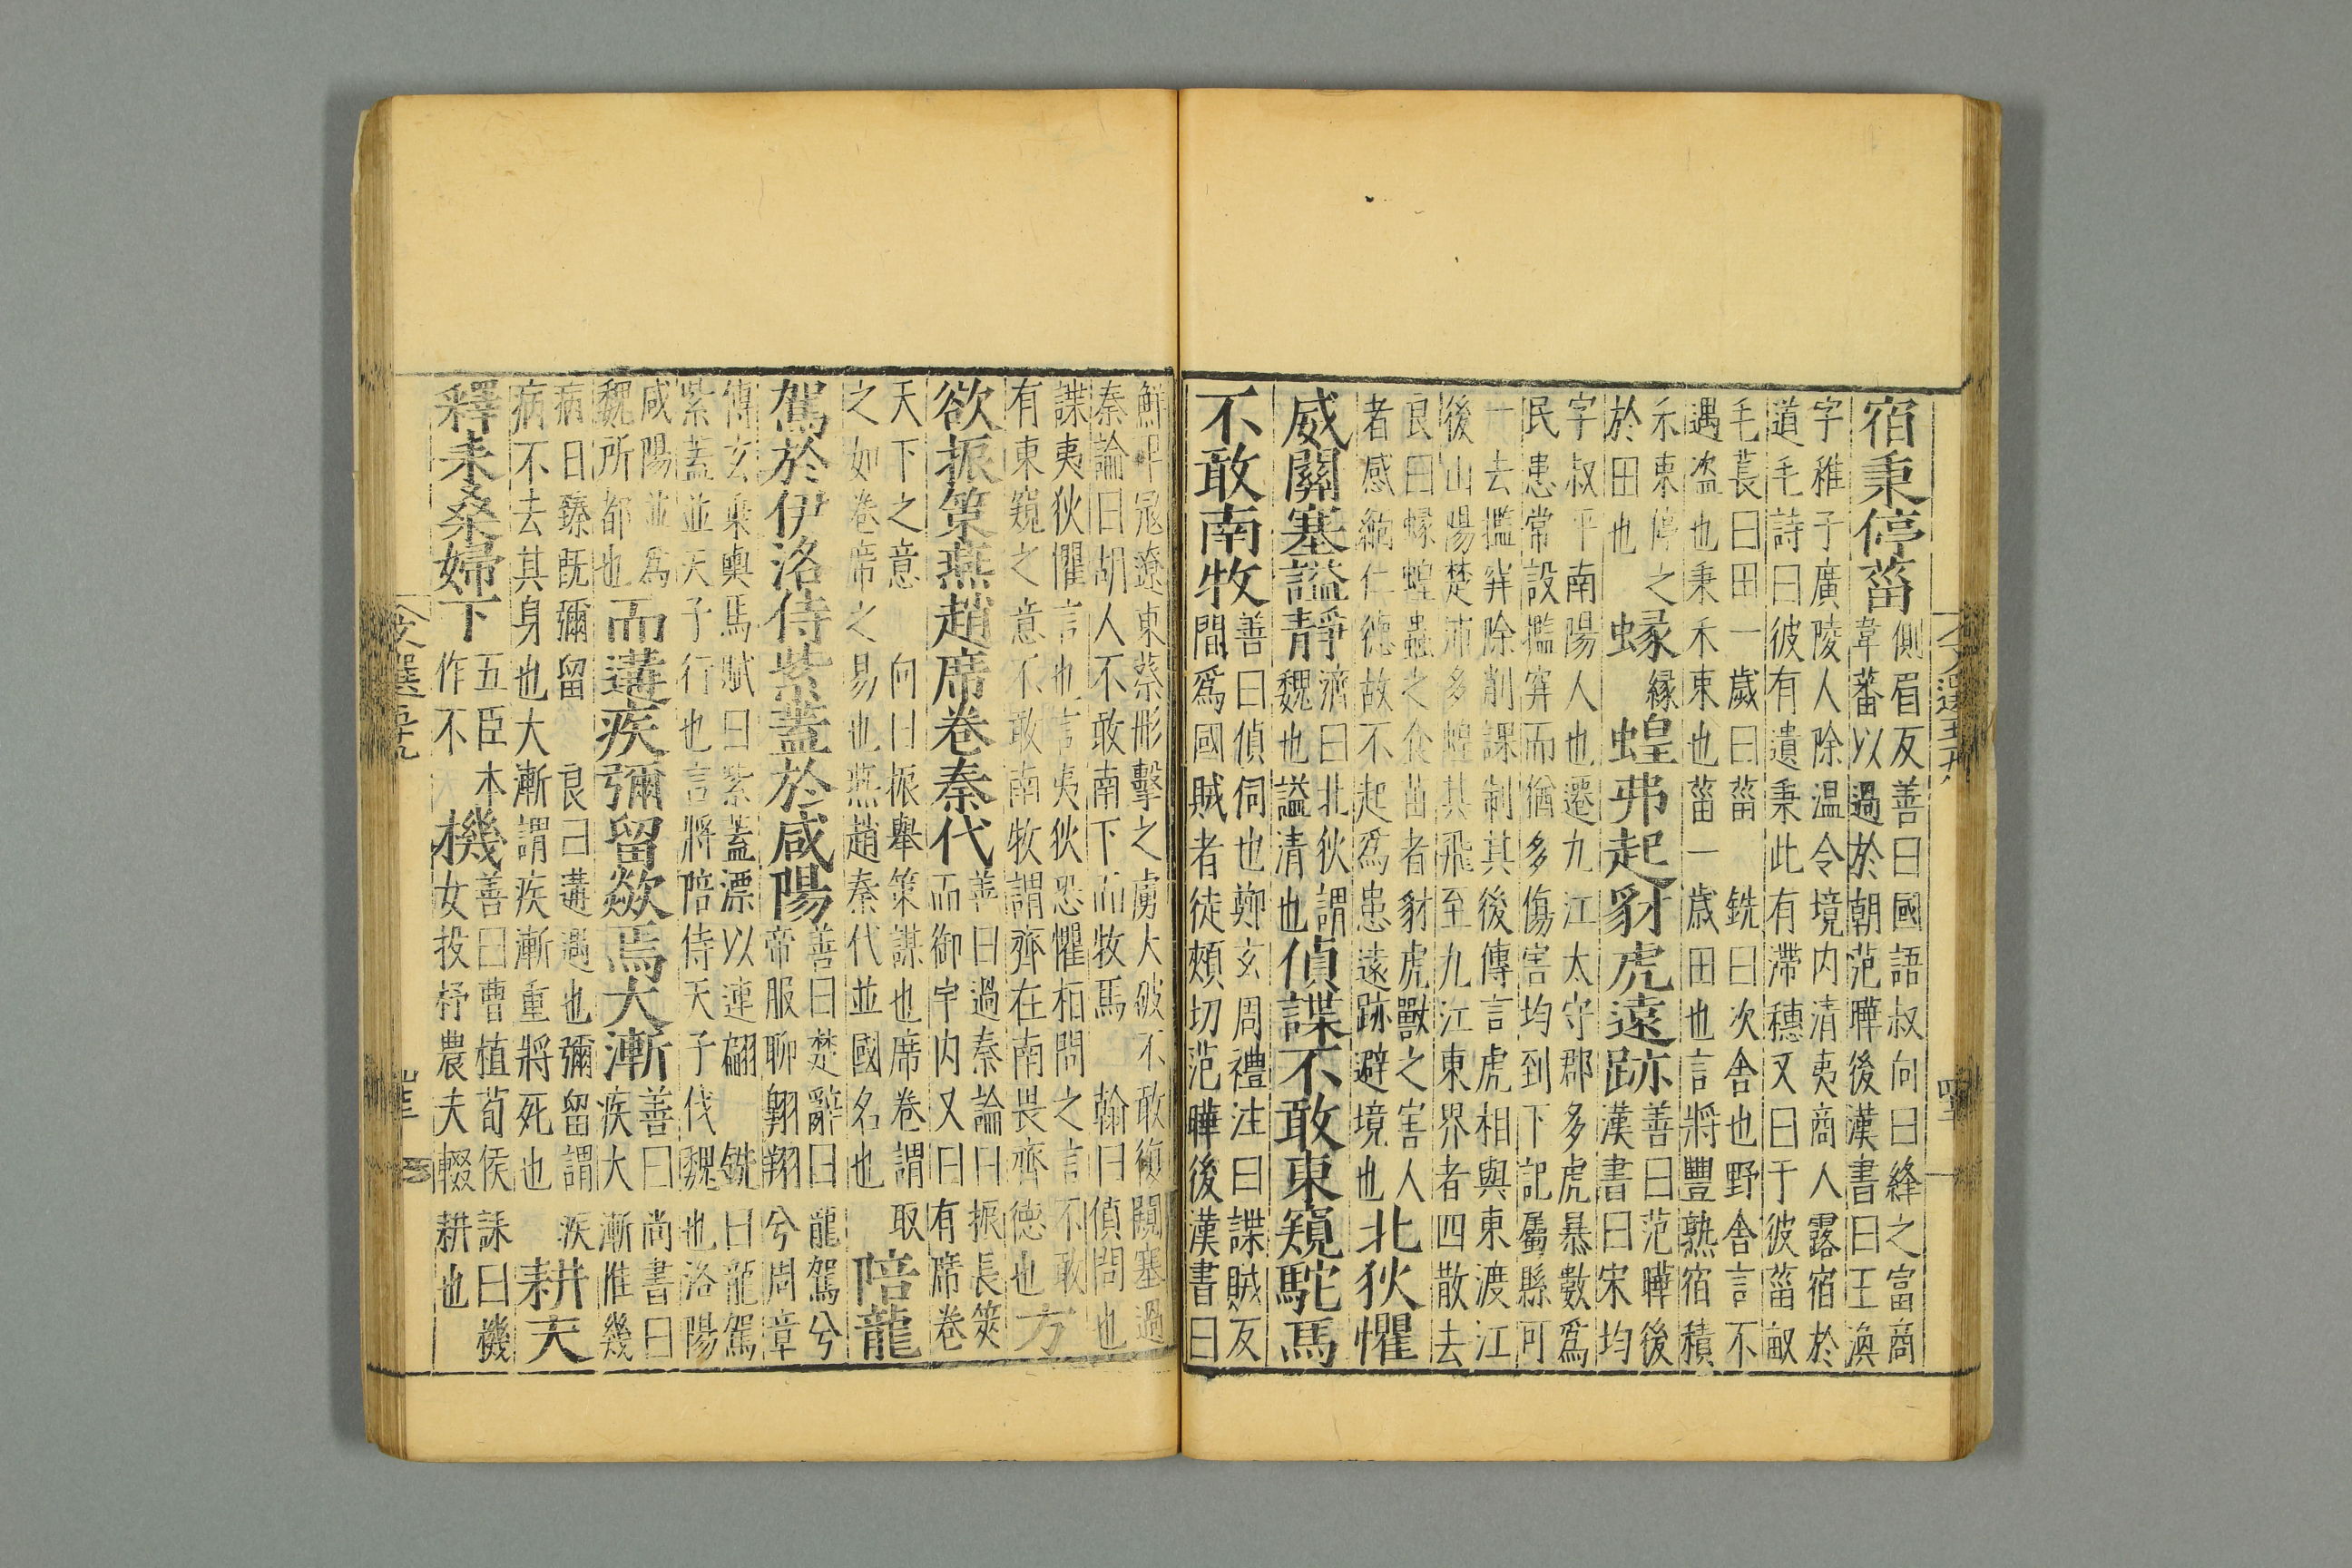 宿秉停菑
側眉反善曰國語叔向曰絳之富商
韋蕃以過於朝范曄後漢書曰王渙
字稚子廣陵人除温令境内清夷商人露宿於
道毛詩曰彼有遺秉此有滯穗又曰于彼菑畝
毛萇曰田一歲曰菑 銑曰次舍也野舍言不
遇盗也秉禾束也菑一歲田也言將豐熟宿積
禾束停之
於田也
蝝
緣
蝗弗起豺虎遠跡
善曰范曄後
漢書曰宋均
字叔平南陽人也遷九江太守郡多虎暴數爲
民患常設檻穽而猶多傷害均到下記屬縣可
一去檻穽除削課制其後傳言虎相與東渡江
後山陽楚沛多蝗其飛至九江東界者四散去
良曰蝝蝗蟲之食苗者豺虎獸之害人
者感緬仁德故不起爲患遠跡避境也
北狄懼
威關塞謐靜
濟曰北狄謂
魏也謐清也
偵諜不敢東窺駝馬
不敢南牧
善曰偵伺也鄭玄周禮注曰諜賊反
間爲國賊者徒頰切范曄後漢書曰
鮮卑冦遼東蔡彤擊之虜大破不敢復闚塞過
秦論曰胡人不敢南下而牧馬 翰曰偵問也
諜夷狄懼言也言夷狄恐懼栢問之言不敢
有東窺之意不敢南牧謂齊在南畏齊德也
方
欲振策燕趙席卷秦代
善曰過秦論曰振長筴
而御宇内又曰有席卷
天下之意 向曰振舉策謀也席卷謂取
之如卷席之易也燕趙秦代並國名也
陪龍
駕於伊洛侍紫蓋於咸陽
善曰楚辭曰龍駕兮
帝服聊翱翔兮周章
傅玄乘輿馬賦曰紫蓋漂以連翩 銑曰龍駕
紫蓋並天子行也言將陪侍天子伐魏也洛陽
咸陽並爲
魏所都也
而遘疾彌留欻焉大漸
善曰尚書曰
疾大漸惟幾
病日臻既彌留 良曰遘遇也彌留謂疾
病不去其身也大漸謂疾漸重將死也
耕夫
釋耒桑婦下
五臣本
作不
機
善曰曹植荀侯誄曰機
女投杼農夫輟耕也